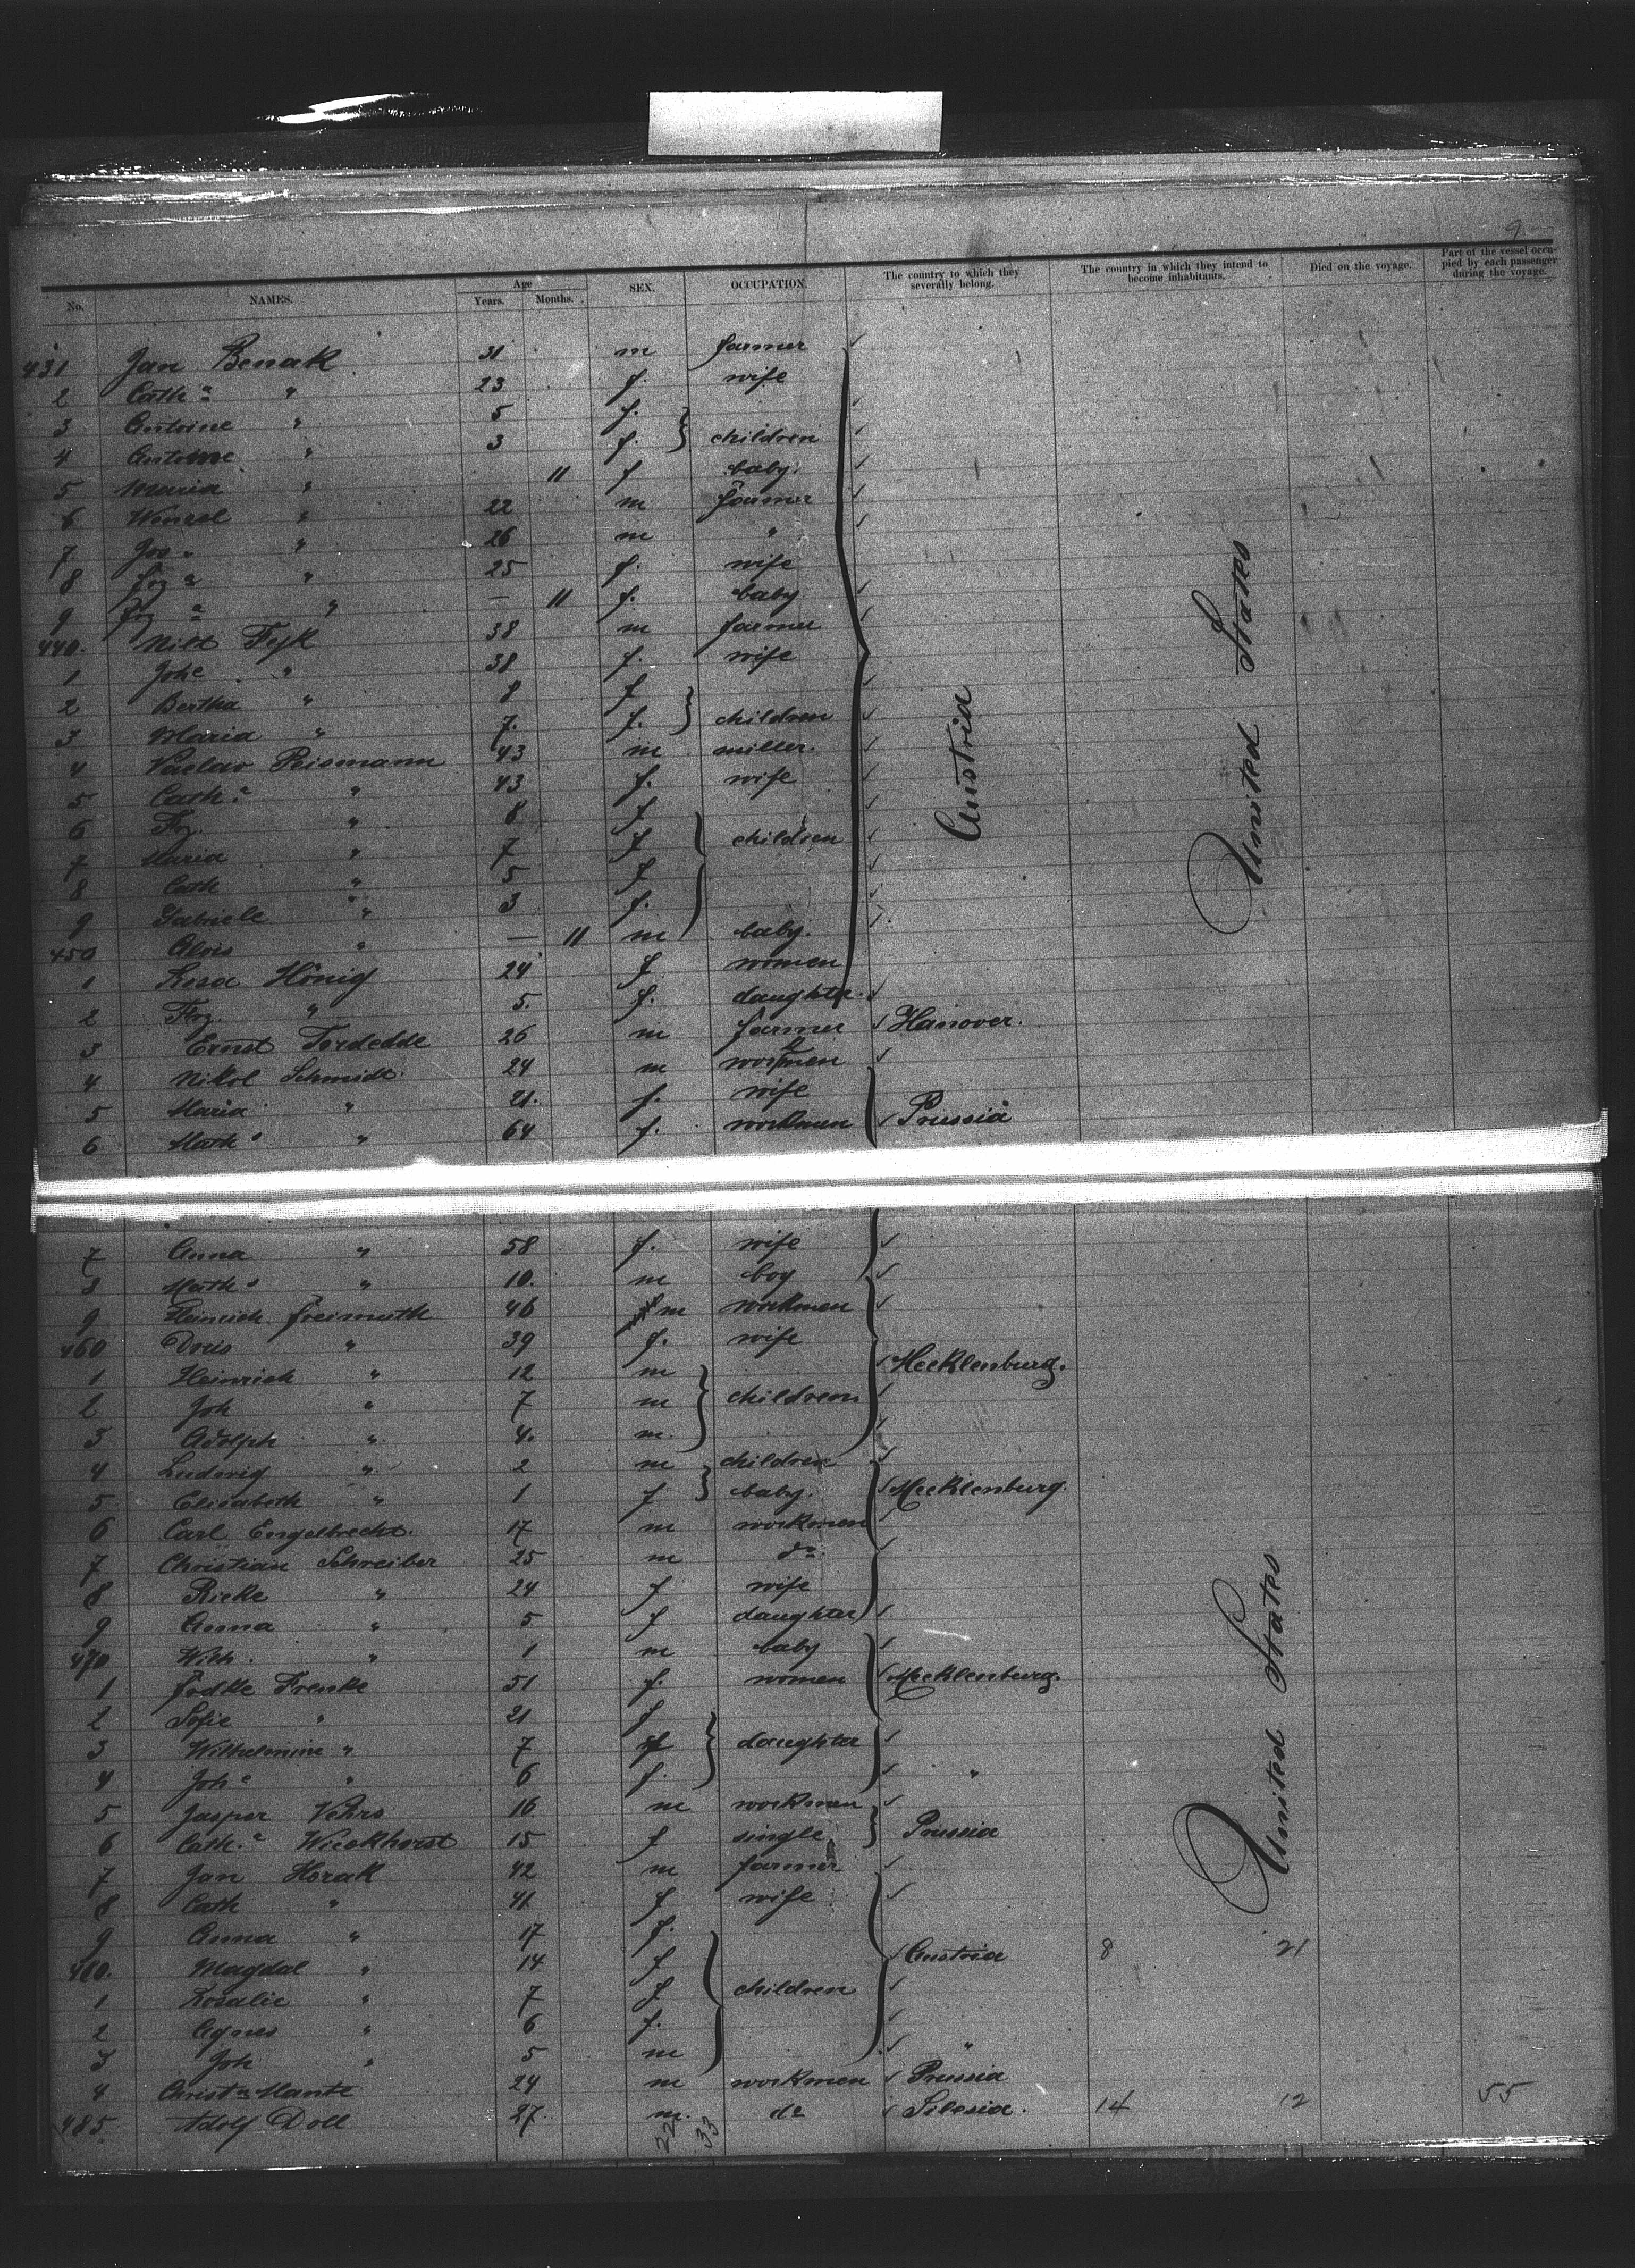 9
No. NAMES. Age Years. Months. SEX. OCCUPATION. The country to which they severally belong. The country in which they intend to become inhabitants. Died on the voyage. Part of the vessel occupied by each passenger during the voyage.
431 Jan Benak 31 m farmer
2 Cath.a " 23 f. wife
3 Antoine " 5 f.
4 Antoine " 3 f. children
5 Maria " 11 f baby.
6 Wenzel " 22 m farmer
7 Jos. " 26 m "
8 Frz.a " 25 f. wife
9 Frz.a " — 11 f. baby
440. Fejk 38 m farmer
1 Johe " 38 f. wife
2 Bertha " 8 f
3 Maria " 7. f. children
4 Vaclav Reismann 43 m miller.
5 Cath.a " 43 f. wife
6 Frz. " 8 f
7 Maria " 7 f children
8 Cath " 5 f
9 Gabriele " 3 f.
450 Alois " — 11 m baby.
Austria
United States
1 Rosa Hönig 24 f women
2 Frz. " 5. f. daughter.
3 Ernst Tordedde 26 m farmer Hanover.
4 Nikol Schmidt. 24 m workmen
5 Maria " 21. f. wife
6 Math.s " 64 f. workmen Prussia
7 Anna " 58 f. wife
8 Math.s " 10. m boy
9 Heinrich Freimuth 46 m workmen
460 Dries " 39 f. wife
1 Heinrich " 12 m Mecklenburg.
2 Joh " 7 m childrens
3 Adolph " 4. m
4 Ludwig " 2 m children
5 Elisabeth " 1 f baby. Mecklenburg.
6 Carl Engelbrecht. 17 m workmen
7 Christian Schreiber 25 m do.
8 Rieke " 24 f wife
9 Anna " 5 f daughter
470 Wilh. " 1 m baby
1 Fodke Frenke 51 f. women Mecklenburg.
2 Sofie " 21 f
3 Wilhelmine " 7 f daughter
4 Joh.a " 6 f. "
5 Jasper Vehrs 16 m workmen
6 Cath.a Wieckhorst 15 f single Prussia
7 Jan Horak 42 m farmer
8 Cath " 41 f wife
9 Anna " 17 f.
480. Magdal " 14 f Austria 8 21
1 Rosalie " 7 f children
2 Agnes " 6 f.
3 Joh " 5 m "
4 Christ.n Mante 24 m workmen Prussia
485. Adolf Doll 27. m. do Silesia. 14 12 55
United States
22 33